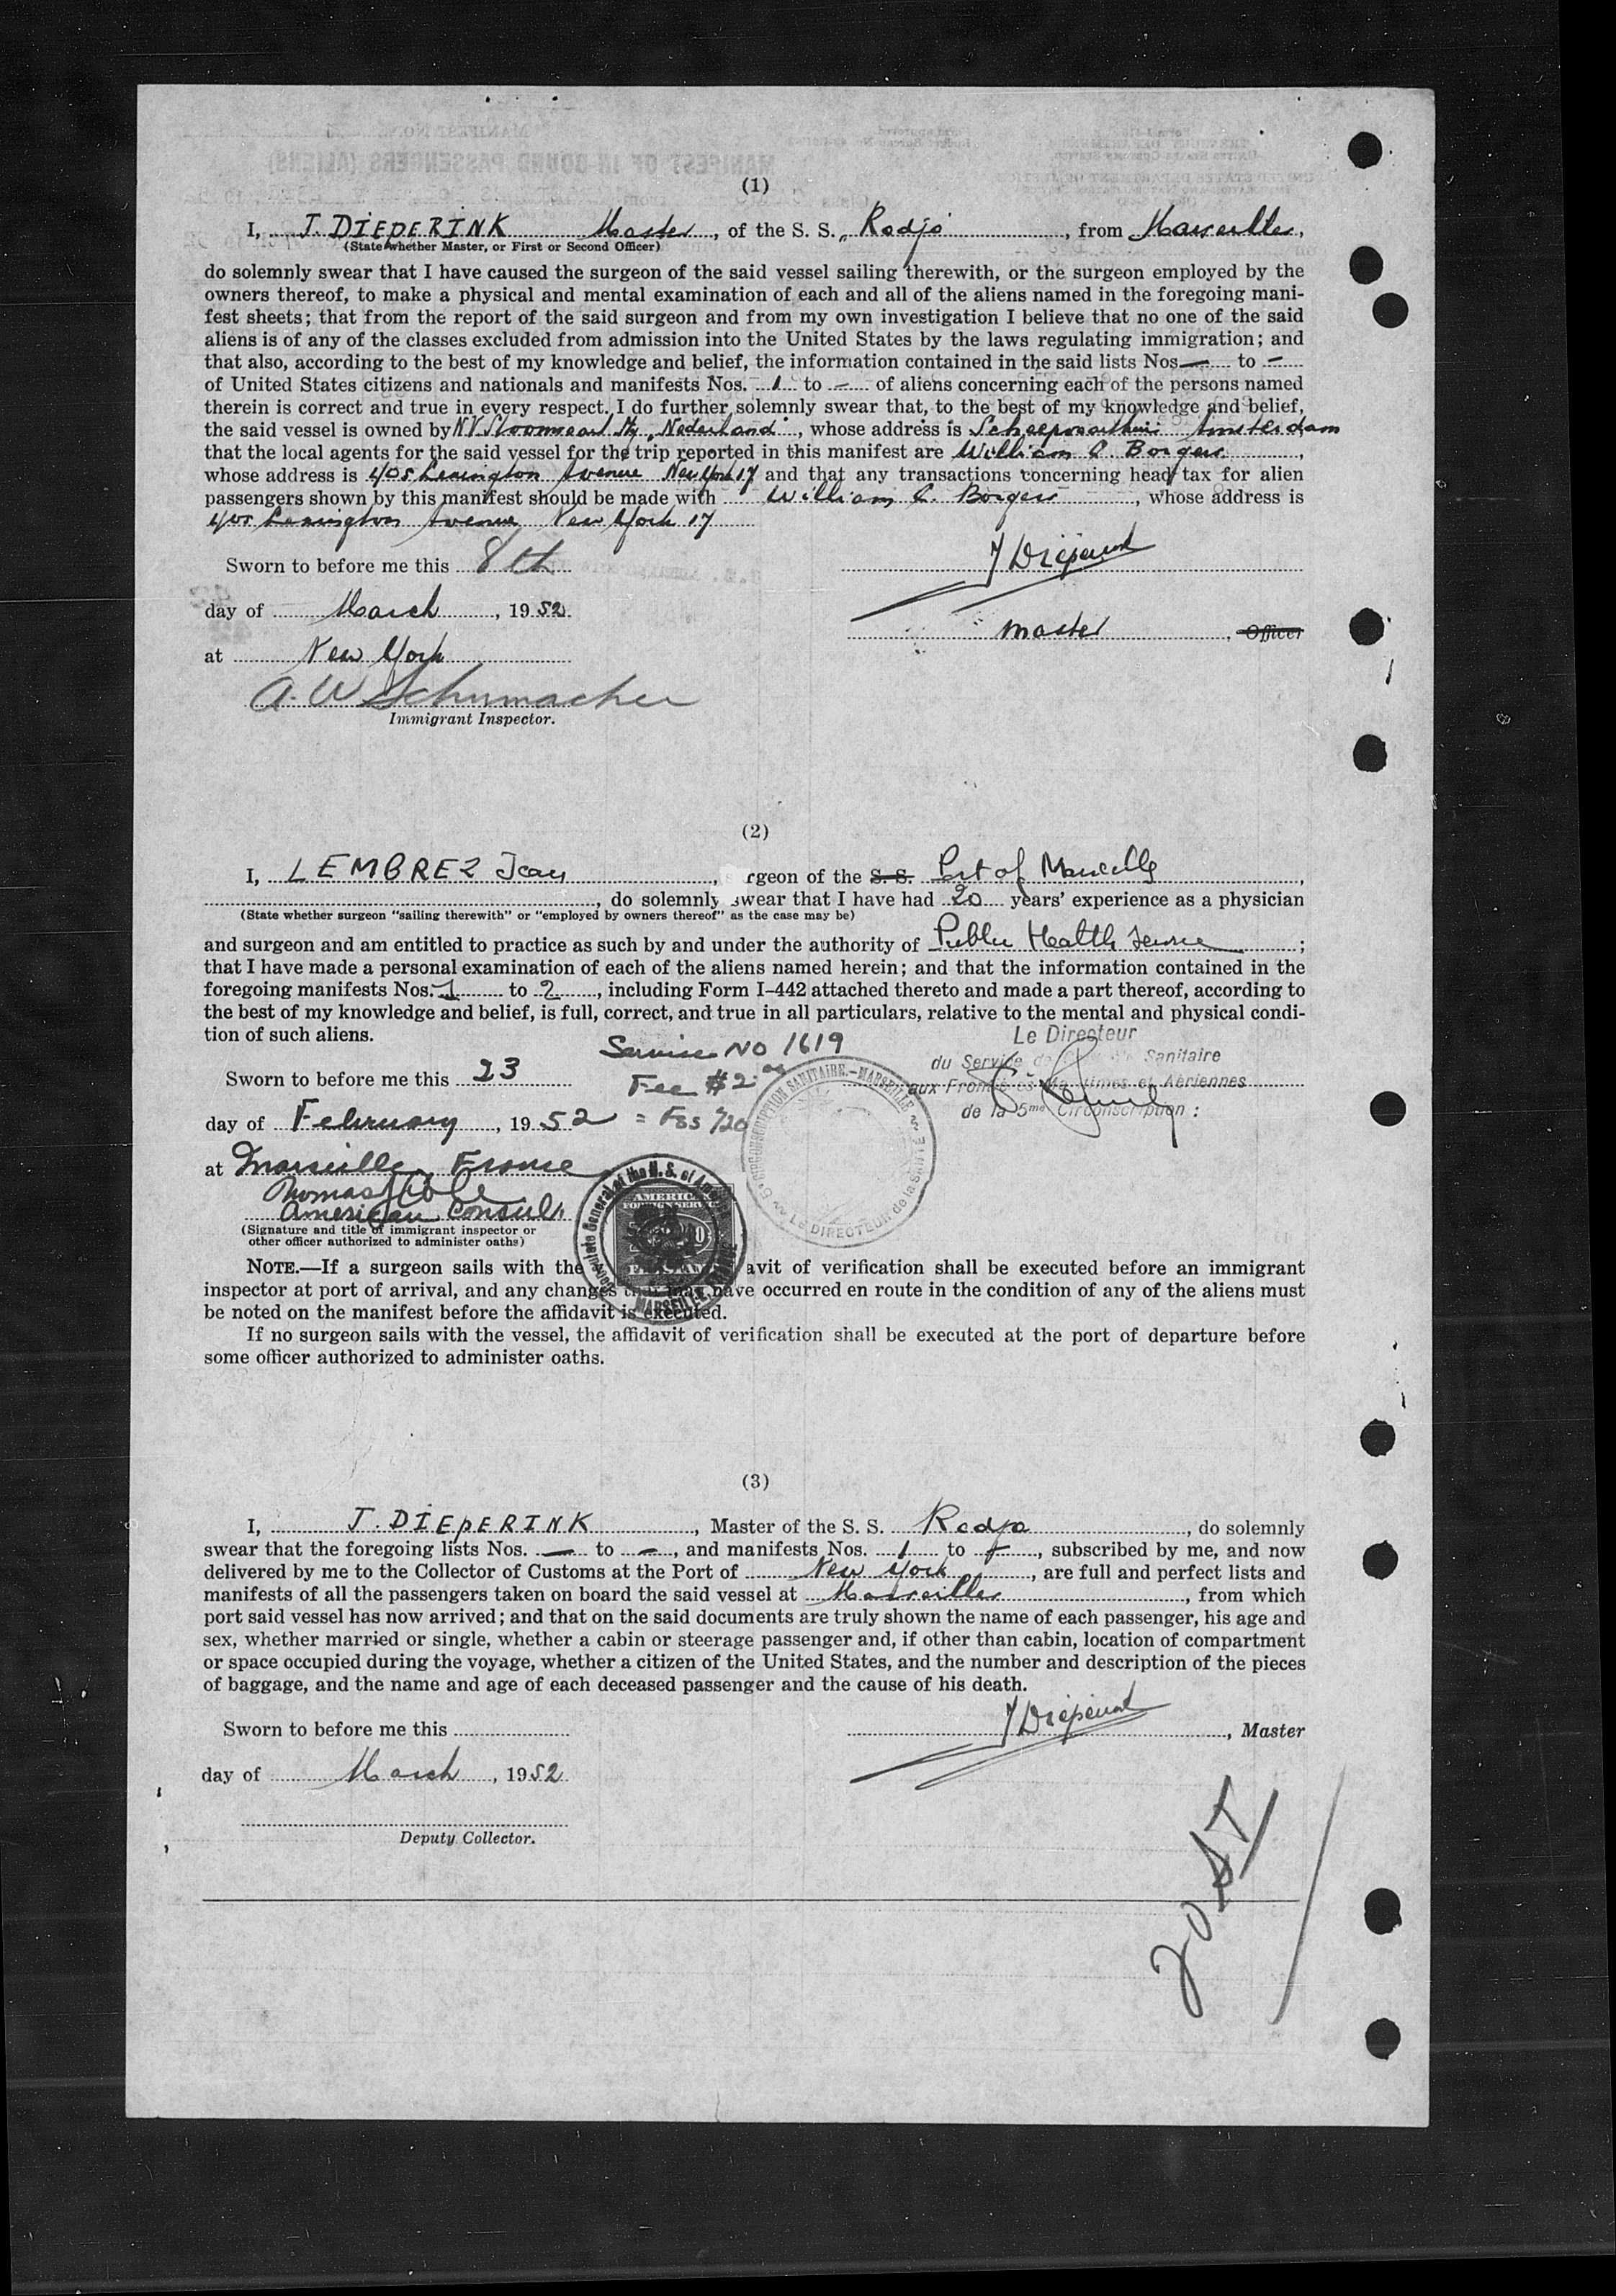 (1)
I, J. DIEPERINK Master, of the S. S. „Radja, from Marseilles,
(State whether Master, or First or Second Officer)
do solemnly swear that I have caused the surgeon of the said vessel sailing therewith, or the surgeon employed by the
owners thereof, to make a physical and mental examination of each and all of the aliens named in the foregoing mani-
fest sheets; that from the report of the said surgeon and from my own investigation I believe that no one of the said
aliens is of any of the classes excluded from admission into the United States by the laws regulating immigration; and
that also, according to the best of my knowledge and belief, the information contained in the said lists Nos. — to —
of United States citizens and nationals and manifests Nos. 1 to — of aliens concerning each of the persons named
therein is correct and true in every respect. I do further solemnly swear that, to the best of my knowledge and belief,
the said vessel is owned by N.V. Stoomvaart My „Nederland", whose address is Scheepvaarthuis Amsterdam
that the local agents for the said vessel for the trip reported in this manifest are William C. Borgers,
whose address is 405 Lexington Avenue New York 17 and that any transactions concerning head tax for alien
passengers shown by this manifest should be made with William C. Borgers, whose address is
405 Lexington Avenue New York 17
Sworn to before me this 8th
day of March, 1952
at New York
A. W. Schumacher
Immigrant Inspector.
J Dieperink
master, Officer
(2)
I, LEMBREZ Jean, surgeon of the S. S. Port of Marseille,
, do solemnly swear that I have had 20 years' experience as a physician
(State whether surgeon "sailing therewith" or "employed by owners thereof" as the case may be)
and surgeon and am entitled to practice as such by and under the authority of Public Health Service;
that I have made a personal examination of each of the aliens named herein; and that the information contained in the
foregoing manifests Nos. 1 to 2, including Form I-442 attached thereto and made a part thereof, according to
the best of my knowledge and belief, is full, correct, and true in all particulars, relative to the mental and physical condi-
tion of such aliens.
Service No 1619
Fee $2.00
= Fcs 720
Le Directeur
du Service de Sanitaire
aux Frontières Maritimes et Aériennes
de la 5me Circonscription :
Sworn to before me this 23
day of February, 1952
at Marseille, France
Thomas Cole
American Consul
(Signature and title of immigrant inspector or
other officer authorized to administer oaths)
5e CIRCONSCRIPTION SANITAIRE.-MARSEILLE
LE DIRECTEUR de la SANTÉ
Consulate General of the U. S. of America
MARSEILLE, FRANCE
AMERICAN
FOREIGN SERVICE
FEE STAMP
NOTE.—If a surgeon sails with the avit of verification shall be executed before an immigrant
inspector at port of arrival, and any changes that may have occurred en route in the condition of any of the aliens must
be noted on the manifest before the affidavit is executed.
If no surgeon sails with the vessel, the affidavit of verification shall be executed at the port of departure before
some officer authorized to administer oaths.
(3)
I, J. DIEPERINK, Master of the S. S. Radja, do solemnly
swear that the foregoing lists Nos. — to —, and manifests Nos. 1 to —, subscribed by me, and now
delivered by me to the Collector of Customs at the Port of New York, are full and perfect lists and
manifests of all the passengers taken on board the said vessel at Marseilles, from which
port said vessel has now arrived; and that on the said documents are truly shown the name of each passenger, his age and
sex, whether married or single, whether a cabin or steerage passenger and, if other than cabin, location of compartment
or space occupied during the voyage, whether a citizen of the United States, and the number and description of the pieces
of baggage, and the name and age of each deceased passenger and the cause of his death.
Sworn to before me this
day of March, 1952
J Dieperink, Master
Deputy Collector.